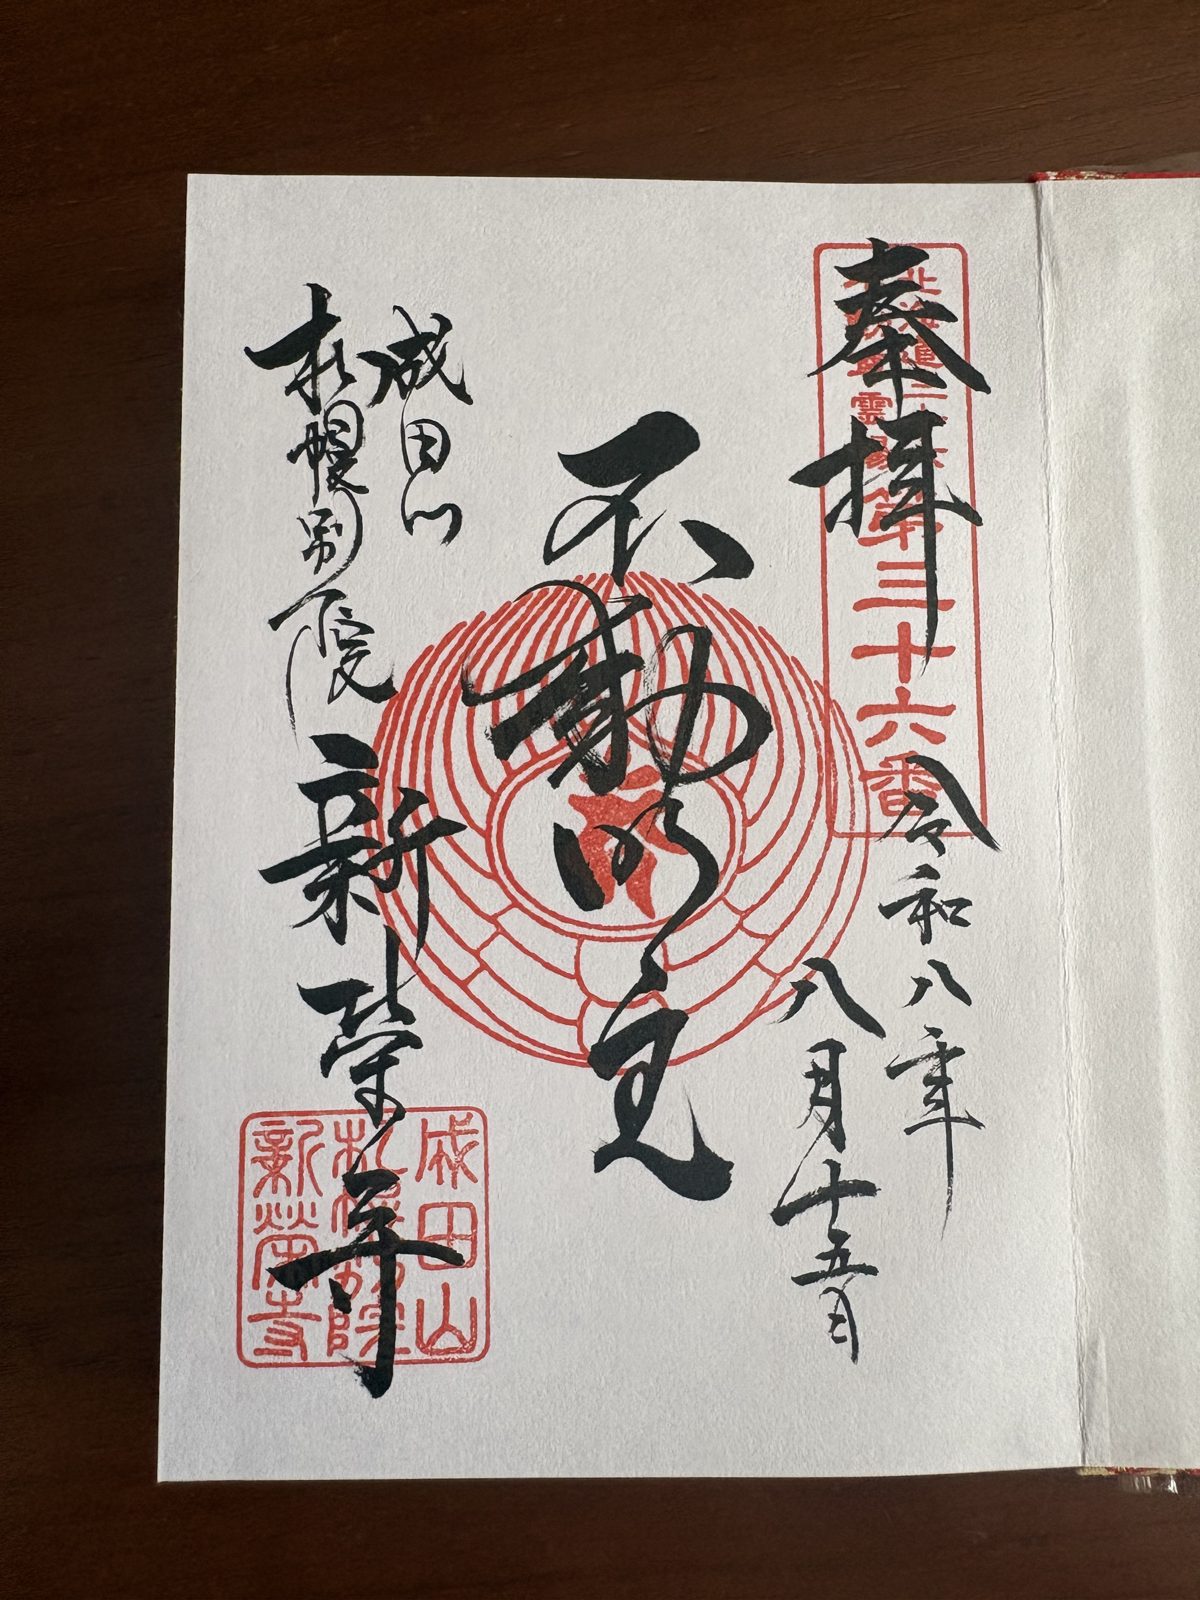 奉拝
令和八年
八月十五日
不動明王
成田山
札幌別院
新榮寺
北海道三十六
第三十六番
成田山
札幌別院
新榮寺